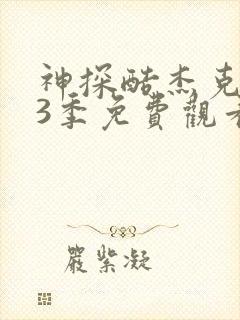 神探酷杰克
3季免費觀看
嚴紫凝